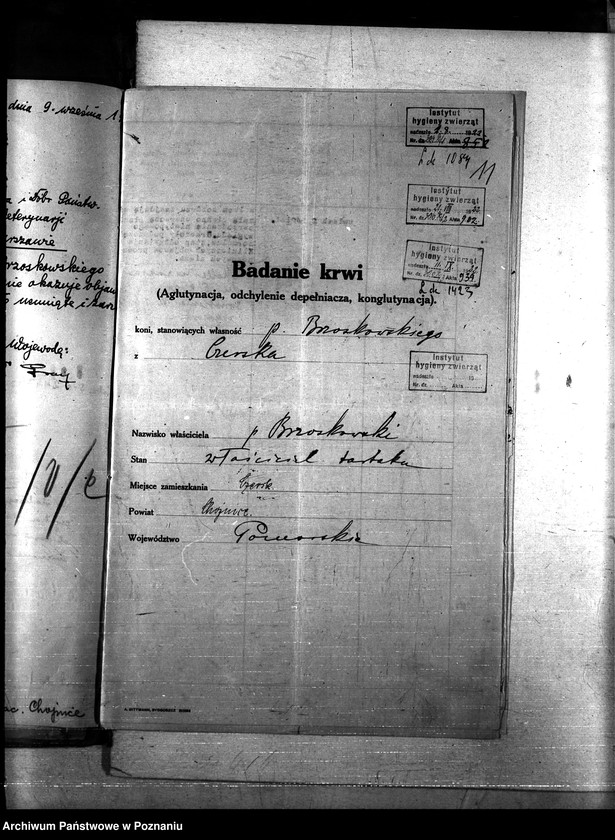 dnia 9. września 1
i Dóbr Państw.
eterynarji
rszawie
rzoskowskiego
nie okazuje objaw
usunięte i zarz
Wojewodą:
/10/
Chojnice
Instytut
hygieny zwierząt
nadeszło 2.9. 1922
Nr. dz. Akta
L. dz. 1084
11
Instytut
hygieny zwierząt
nadeszło VIII 1922
Nr. dz. Akta 902
Instytut
hygieny zwierząt
nadeszło 11. IX.
Nr. dz. Akta 939
L. dz. 1423
Badanie krwi
(Aglutynacja, odchylenie depełniacza, konglutynacja).
koni, stanowiących własność p. Brzoskowskiego
z Czerska
Instytut
hygieny zwierząt
nadeszło 19
Nr. dz. Akta
Nazwisko właściciela p Brzoskowski
Stan właściciel tartaku
Miejsce zamieszkania Czersk
Powiat Chojnice.
Województwo Pomorskie
A. DITTMANN, BYDGOSZCZ
Archiwum Państwowe w Poznaniu